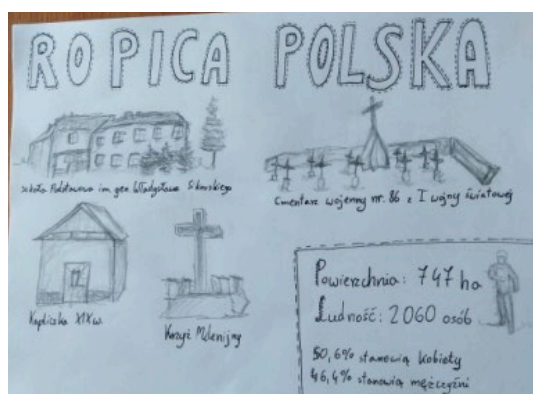 ROPICA POLSKA
Szkoła Podstawowa im. gen. Władysława Sikorskiego
Cmentarz wojenny nr. 86 z I wojny światowej
Kapliczka XIX w.
Krzyż Milenijny
Powierzchnia: 747 ha
Ludność: 2060 osób
50,6% stanowią kobiety
46,4% stanowią mężczyźni